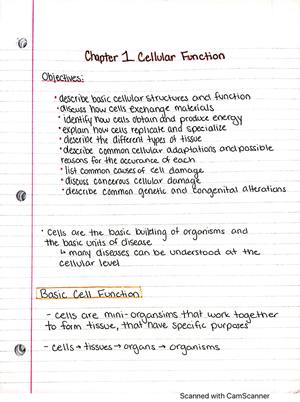 Chapter 1 Cellular Function
Objectives:
• describe basic cellular structures and function
• discuss how cells exchange materials
• identify how cells obtain and produce energy
• explain how cells replicate and specialize
• describe the different types of tissue
• describe common cellular adaptations and possible
reasons for the occurance of each
• list common causes of cell damage
• discuss cancerous cellular damage
• describe common genetic and congenital alterations
• cells are the basic building of organisms and
the basic units of disease
↳ many diseases can be understood at the
cellular level
Basic Cell Function
- cells are mini-organsims that work together
to form tissue, that have specific purposes
- cells → tissues → organs → organisms
Scanned with CamScanner